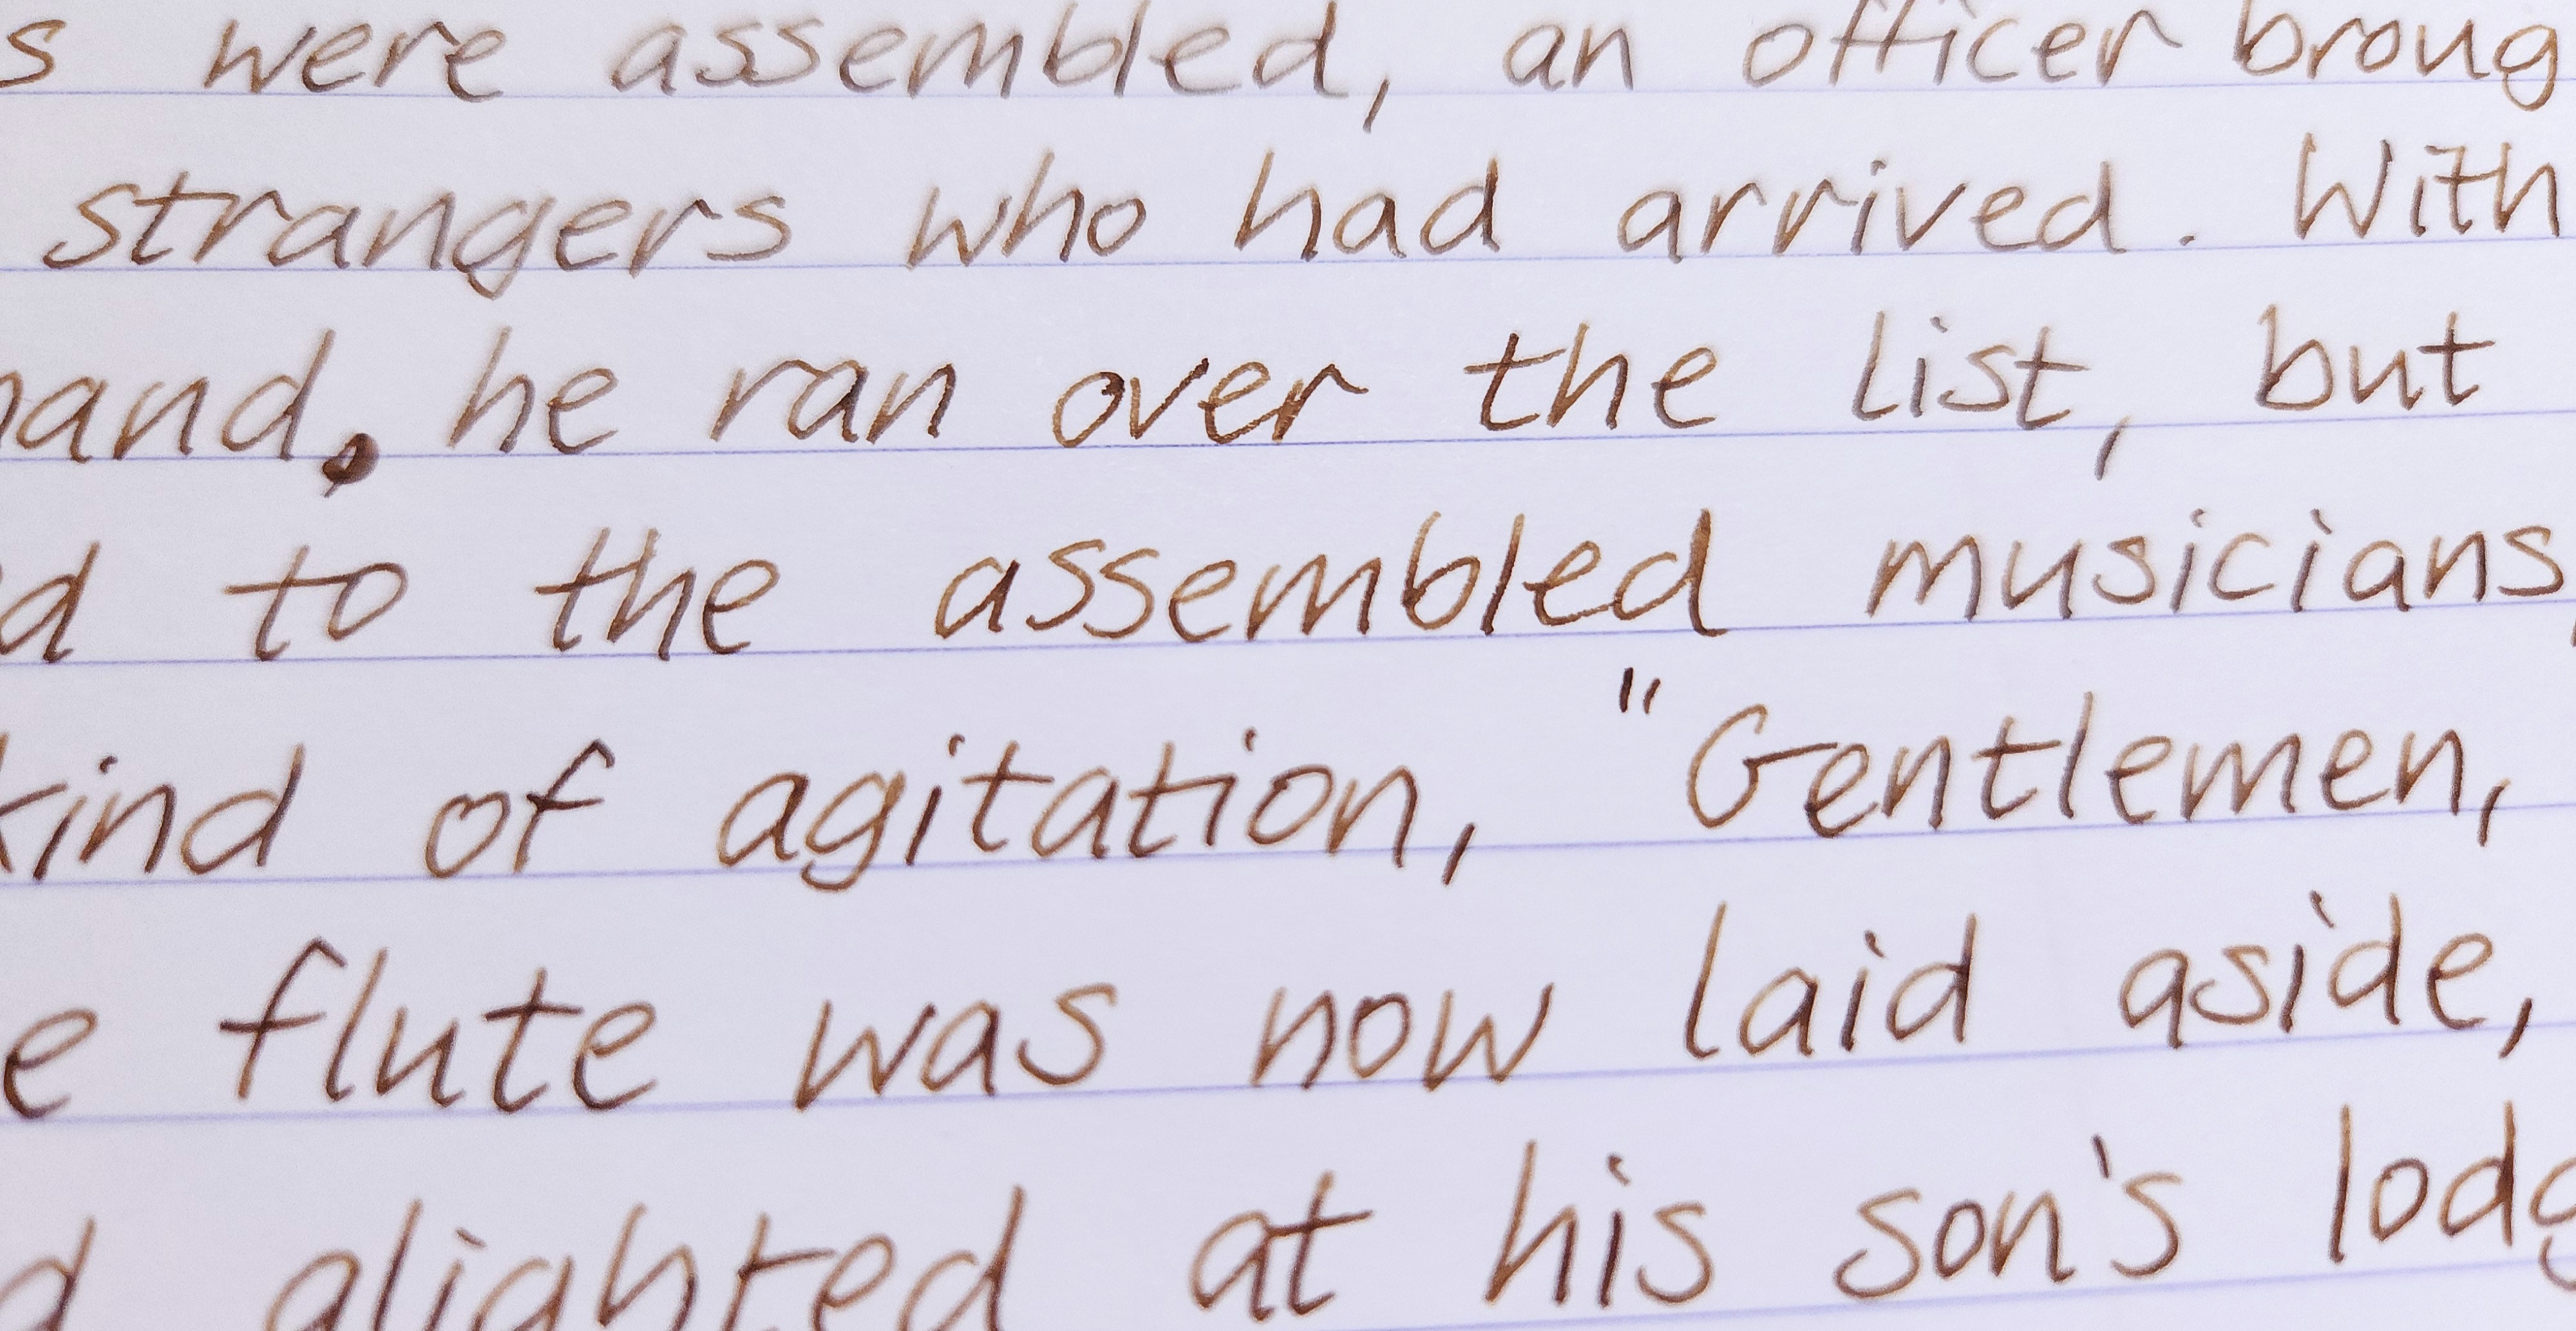 s were assembled, an officer broug
strangers who had arrived. With
hand, he ran over the list, but
d to the assembled musicians,
kind of agitation, "Gentlemen,
e flute was now laid aside,
d alighted at his son's lodg